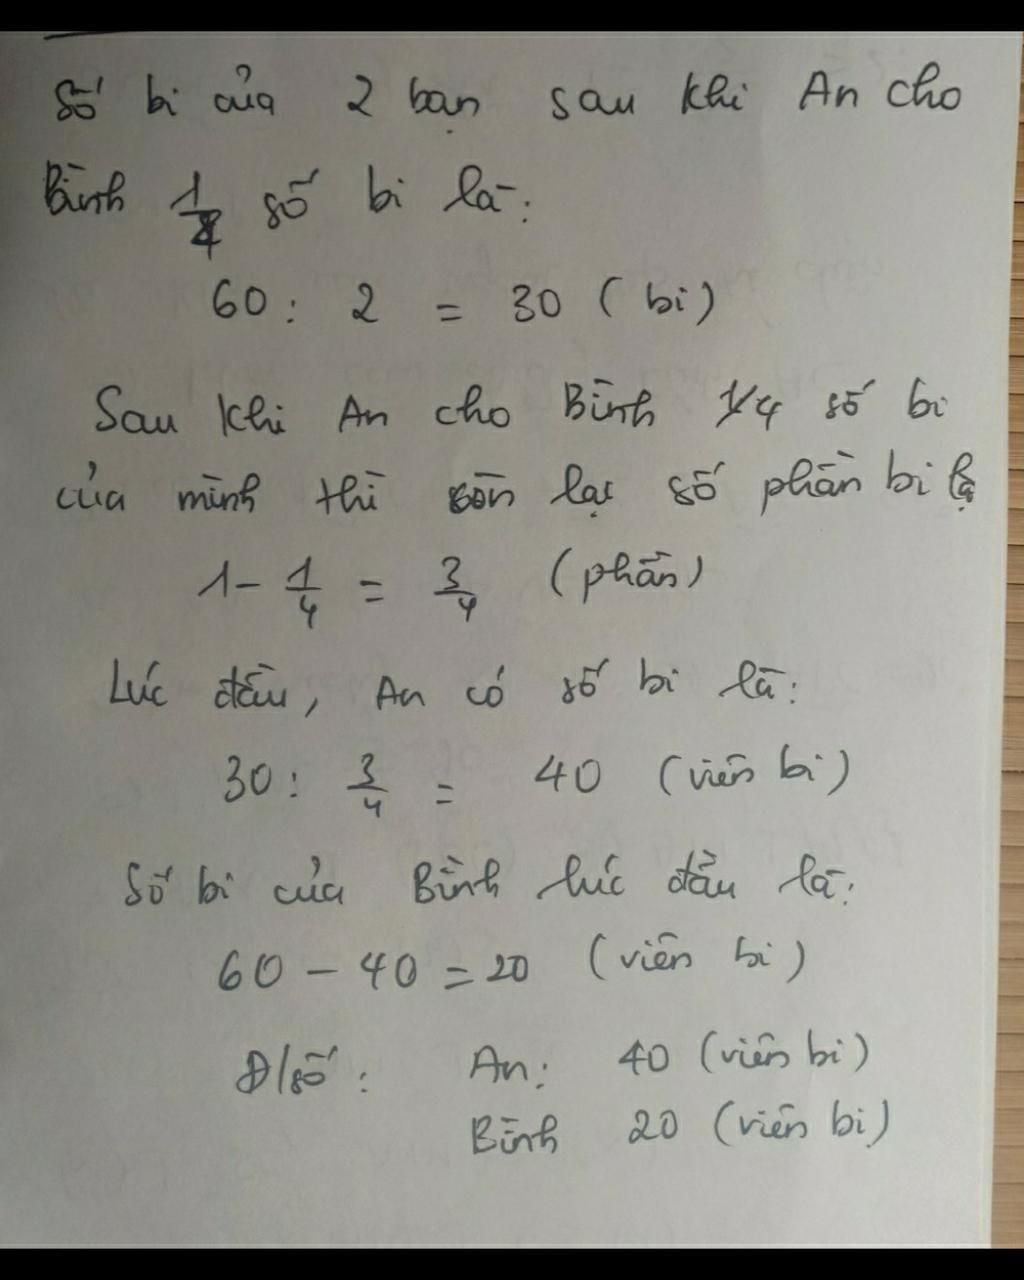 Số bi của 2 bạn sau khi An cho
Bình 1/4 số bi là:
60 : 2 = 30 (bi)
Sau khi An cho Bình 1/4 số bi
của mình thì còn lại số phần bi là
1 - 1/4 = 3/4 (phần)
Lúc đầu, An có số bi là:
30 : 3/4 = 40 (viên bi)
Số bi của Bình lúc đầu là:
60 - 40 = 20 (viên bi)
Đ/số: An: 40 (viên bi)
Bình 20 (viên bi)